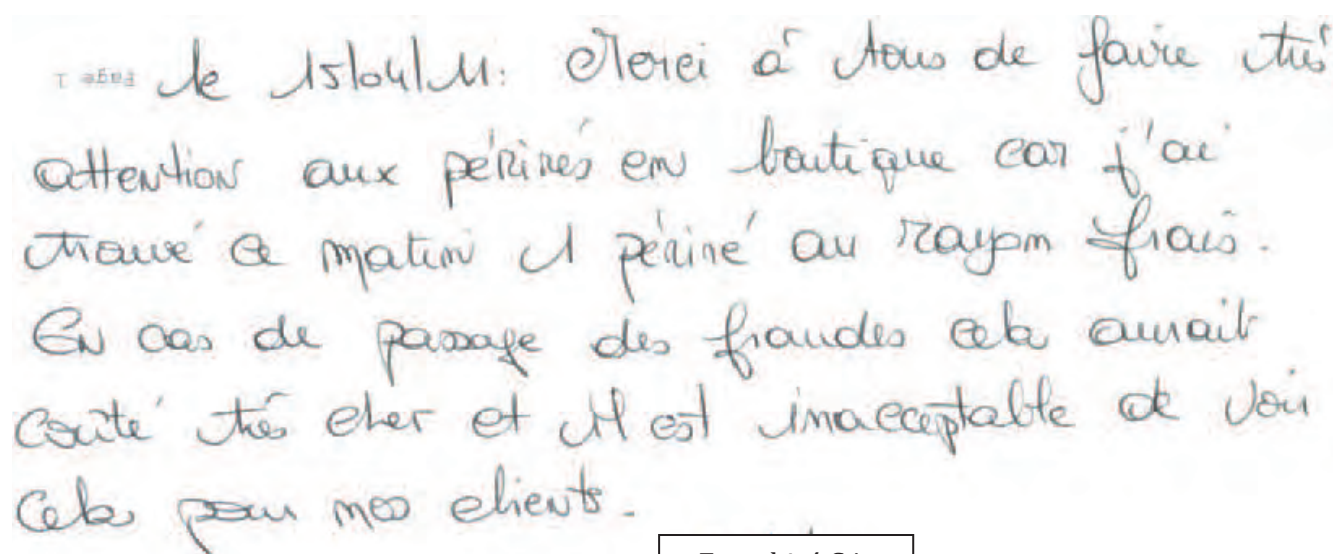 le 15/04/11: Merci à tous de faire très
attention aux périmés en boutique car j'ai
trouvé ce matin 1 périmé au rayon frais.
En cas de passage des fraudes cela aurait
couté très cher et il est inacceptable de voir
cela pour mes clients.